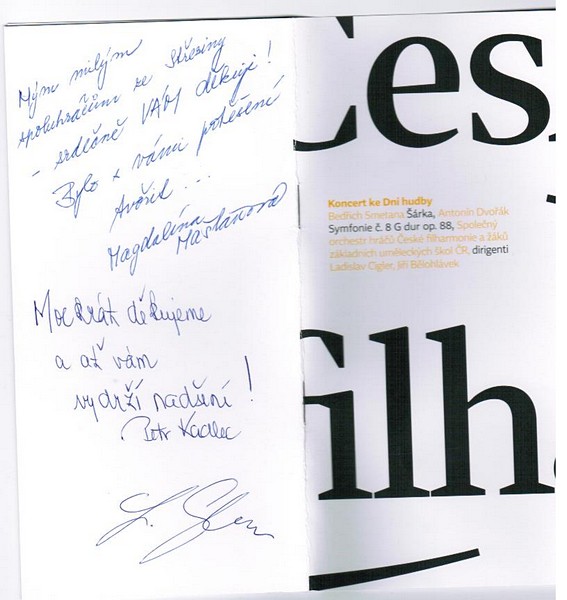 Mým milým
spoluhráčům ze Střesiny
- srdečně VÁM děkuji!
Bylo s vámi potěšení
tvořit...
Magdaléna
Mašlaňová
Mockrát děkujeme
a ať vám
vydrží nadšení!
Petr Kadlec
Čes
Koncert ke Dni hudby
Bedřich Smetana Šárka, Antonín Dvořák
Symfonie č. 8 G dur op. 88, Společný
orchestr hráčů České filharmonie a žáků
základních uměleckých škol ČR, dirigenti
Ladislav Cigler, Jiří Bělohlávek
filh